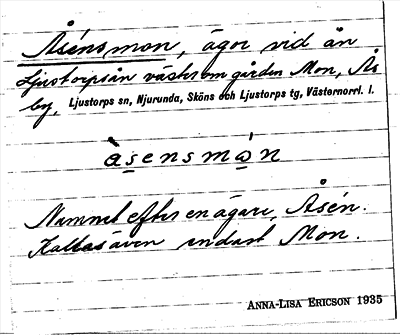 Åsénsmon, ägor vid ån
Ljustorpsån väster om gården Mon, Ås
by, Ljustorps sn, Njurunda, Sköns och Ljustorps tg, Västernorrl. l.
àsensmån
Namnet efter en ägare, Åsén.
Kallas även endast Mon.
ANNA-LISA ERICSON 1935